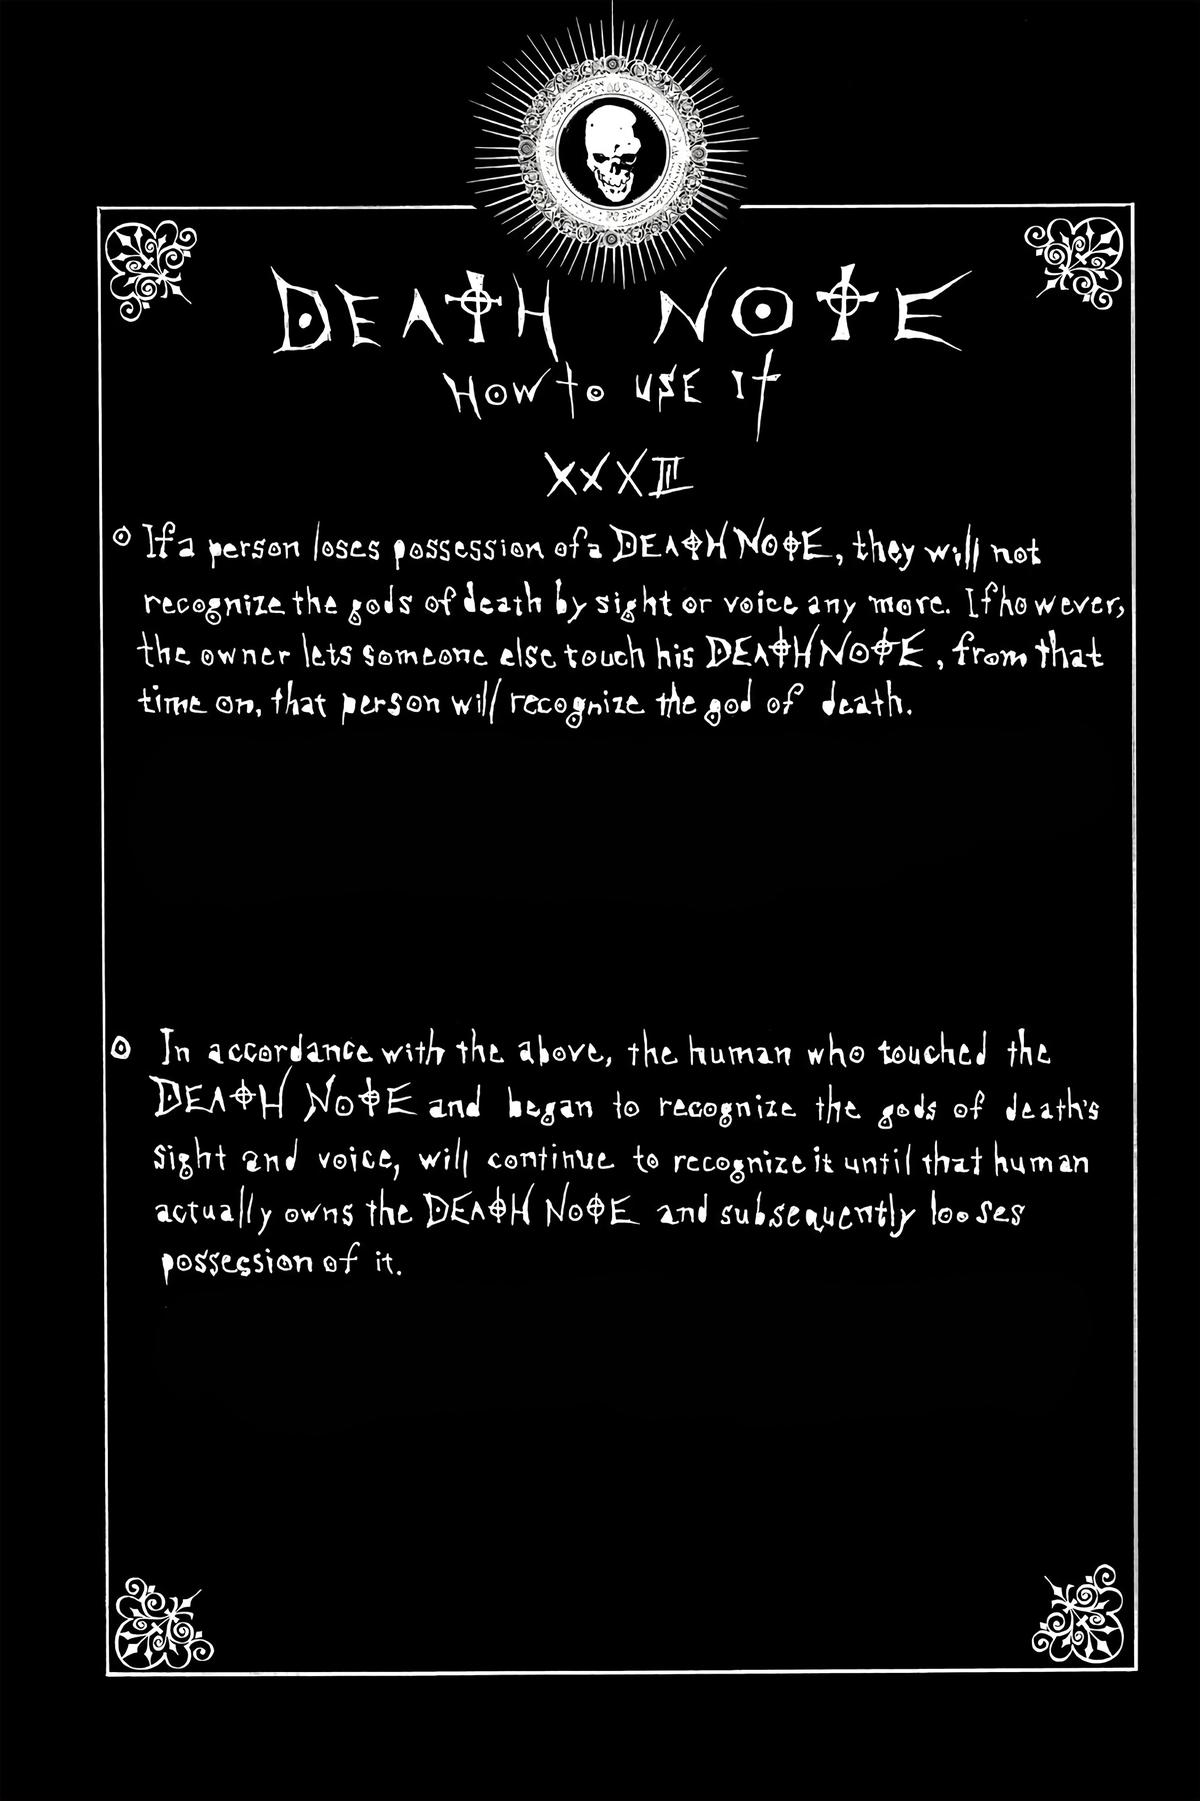 DEATH NOTE
HOW to USE It
XXXIII
If a person loses possession of a DEATH NOTE, they will not
recognize the gods of death by sight or voice any more. If however,
the owner lets someone else touch his DEATH NOTE, from that
time on, that person will recognize the god of death.
In accordance with the above, the human who touched the
DEATH NOTE and began to recognize the gods of death's
sight and voice, will continue to recognize it until that human
actually owns the DEATH NOTE and subsequently looses
possession of it.